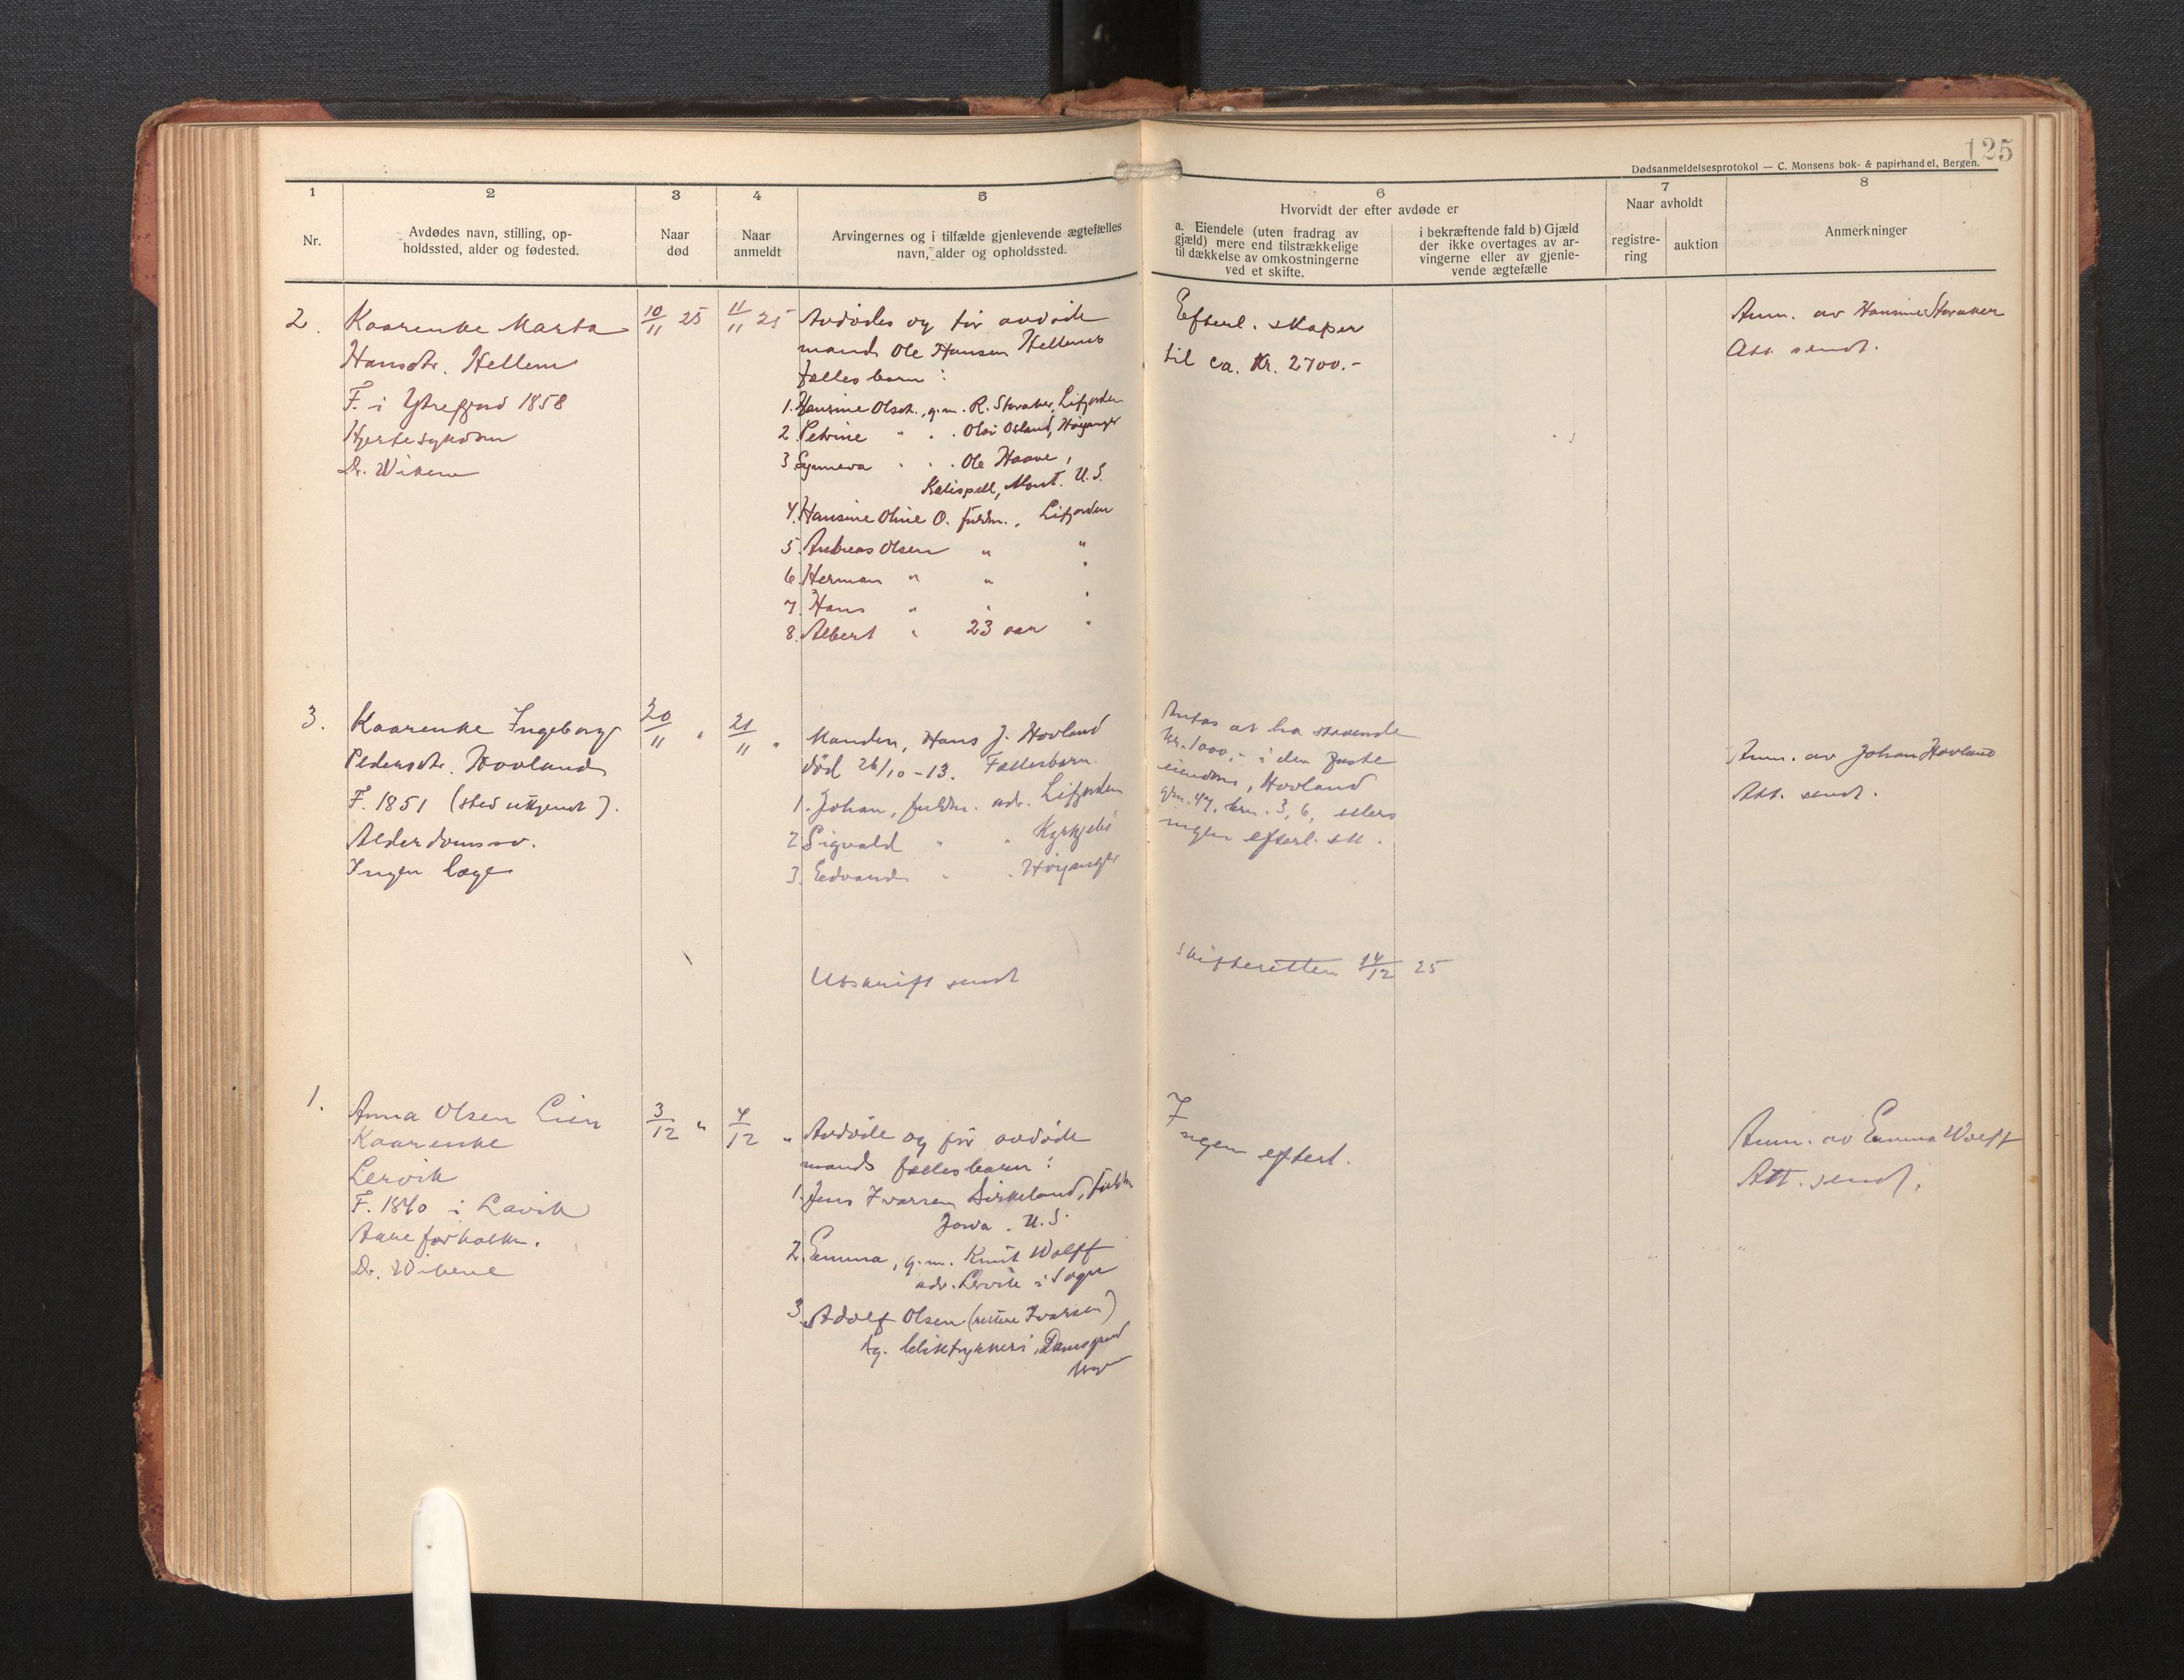 125
Dødsanmeldelsesprotokol — C. Monsens bok- & papirhandel, Bergen.
1
2
3
4
5
6
7
8
Nr.
Avdødes navn, stilling, op-
holdssted, alder og fødested.
Naar
død
Naar
anmeldt
Arvingernes og i tilfælde gjenlevende ægtefælles
navn, alder og opholdssted.
Hvorvidt der efter avdøde er
a. Eiendele (uten fradrag av
gjæld) mere end tilstrækkelige
til dækkelse av omkostningerne
ved et skifte.
i bekræftende fald b) Gjæld
der ikke overtages av ar-
vingerne eller av gjenle-
vende ægtefælle
Naar avholdt
registre-
ring
auktion
Anmerkninger
2.
Kaarenke Marta
Hansdtr. Hellem
F. i Ytrefjord 1858
Hjertesygdom
Dr. Wikene
10/11 25
11/11 25
Avdødes og før avdøde
mands Ole Hansen Hellems
fællesbarn:
1. Hansine Olsdt., g.m. R. Storaker, Lifjorden
2. Petrine " " Olai Osland, Høyanger
3. Synneva " " Ole Haave,
Kalispell, Mont. U.S.
4. Hansine Oline O. fuldm., Lifjorden
5. Andreas Olsen " "
6. Herman " " "
7. Hans " " "
8. Albert " 23 aar "
Efterl. skaper
til ca. Kr. 2700.-
Anm. av Hansine Storaker
Att. sendt.
3.
Kaarenke Ingeborg
Pedersdtr. Hovland
F. 1851 (sted ukjendt).
Alderdomssv.
Ingen læge
20/11 "
21/11 "
Manden, Hans J. Hovland
død 26/10-13. Fællesbarn.
1. Johan, fuldm. adr. Lifjorden
2. Sigvald " " Kyrkjebø
3. Edvard " " Høyanger
Antas at ha staaende
kr. 1000,- i den faste
eiendom, Hovland
gnr. 47, brn. 3, 6, ellers
ingen efterl. sk.
Anm. av Johan Hovland
Att. sendt.
Utskrift sendt
skifteretten 14/12 25
1.
Anna Olsen Lien
Kaarenke
Lervik
F. 1840 i Lavik
Aareforkalkn.
Dr. Wikene
3/12 "
4/12 "
Avdøde og før avdøde
mands fællesbarn:
1. Jens Ivarsen Birkeland, fuldm
Jowa. U.S.
2. Emma, g.m. Knut Wolff
adr. Lervik i Sogn
3. Adolf Olsen (rettere Ivarsen)
Damsgaard
Ingen efterl.
Anm. av Emma Wolff
Att. sendt.